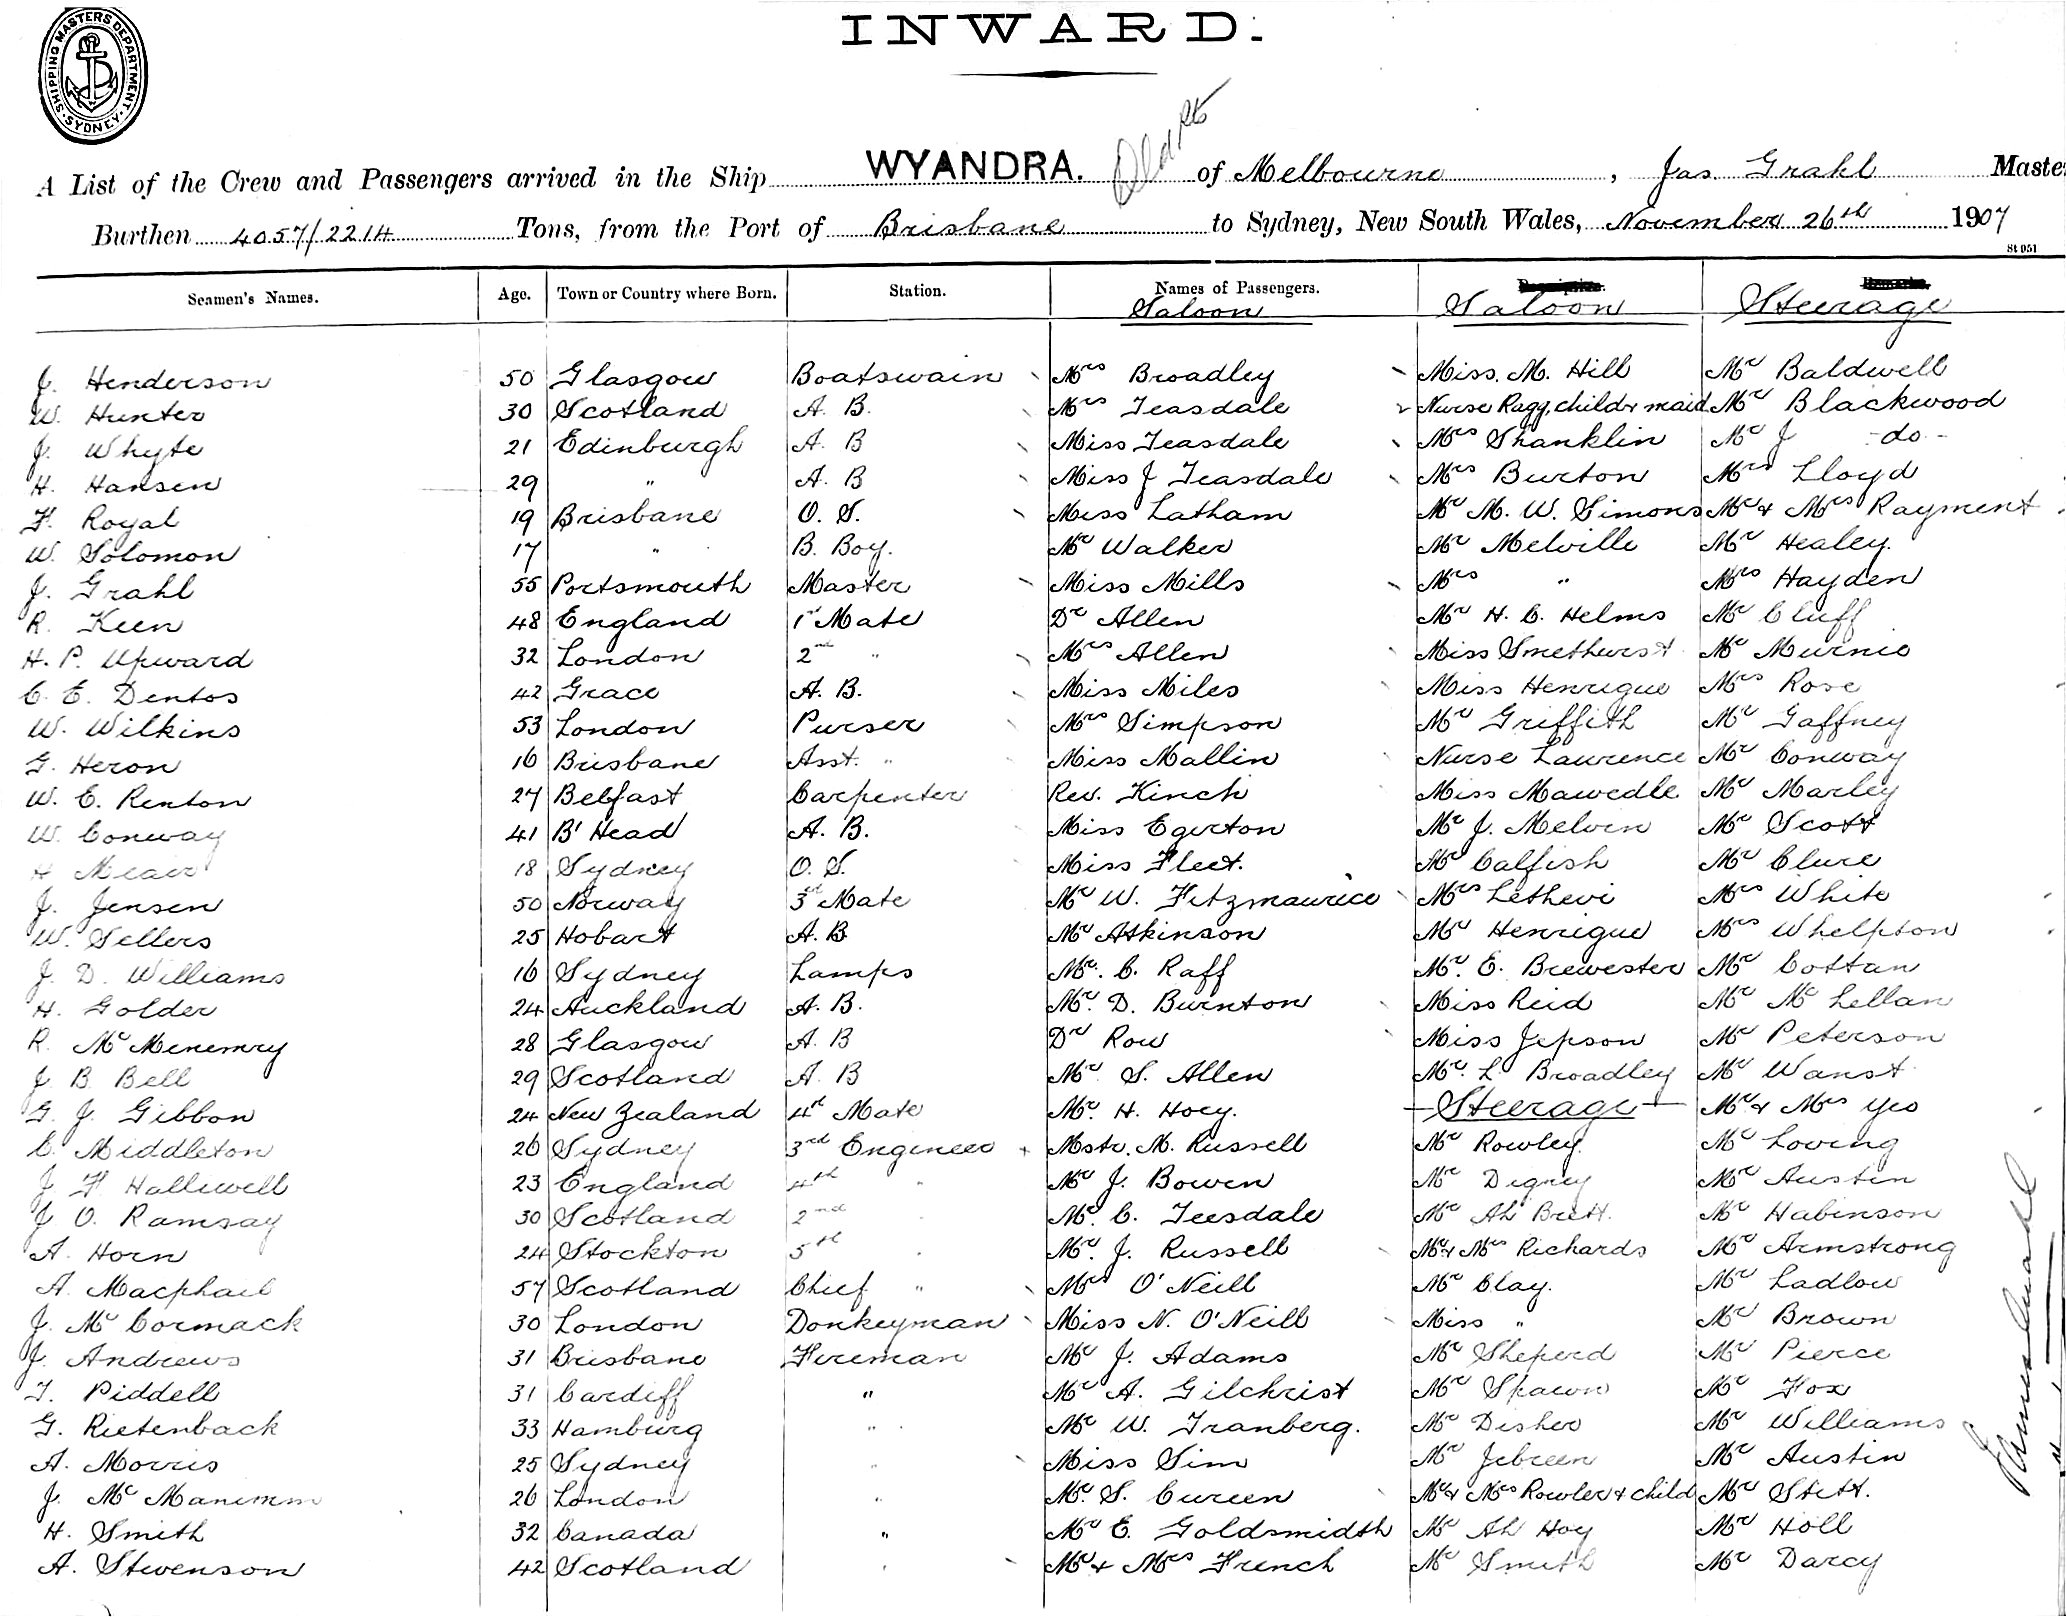 SHIPPING MASTERS DEPARTMENT · SYDNEY ·
INWARD.
A List of the Crew and Passengers arrived in the Ship WYANDRA. of Melbourne, Jas. Grahl Master
Burthen 4057/2214 Tons, from the Port of Brisbane to Sydney, New South Wales, November 26th 1907
St 051
Seamen's Names. Age. Town or Country where Born. Station. Names of Passengers. Saloon Saloon Steerage
J. Henderson 50 Glasgow Boatswain Mrs Broadley Miss. M. Hill Mr Baldwell
W. Hunter 30 Scotland A. B. Mrs Teasdale Nurse Ragg, child & maid Mr Blackwood
J. Whyte 21 Edinburgh A. B Miss Teasdale Mrs Shanklin Mr J - do -
H. Hansen 29 " A. B Miss J Teasdale Mrs Burton Mrs Lloyd
F. Royal 19 Brisbane O. S. Miss Latham Mr M. W. Simons Mr & Mrs Rayment
W. Solomon 17 " B. Boy. Mr Walker Mr Melville Mr Healey.
J. Grahl 55 Portsmouth Master Miss Mills Mrs " Mrs Hayden
R. Keen 48 England 1st Mate Dr Allen Mr H. C. Helms Mr Cluff
H. P. Upward 32 London 2nd " Mrs Allen Miss Smethurst Mr Murnie
C. E. Dentos 42 Grace A. B. Miss Miles Miss Henrique Mrs Rose
W. Wilkins 53 London Purser Mrs Simpson Mr Griffith Mr Gaffney
G. Heron 16 Brisbane Asst. " Miss Mallin Nurse Lawrence Mr Conway
W. E. Renton 27 Belfast Carpenter Rev. Kinch Miss Mawedle Mr Marley
W. Conway 41 B' Head A. B. Miss Egerton Mr J. Melven Mr Scott
H Meair 18 Sydney O. S. Miss Fleet. Mr Calfish Mr Clure
J. Jensen 50 Norway 3rd Mate Mr W. Fitzmaurice Mrs Lethevi Mrs White
W. Sellers 25 Hobart A. B. Mr Atkinson Mr Henrique Mrs Whelpton
J. D. Williams 16 Sydney Lamps Mr. C. Raff Mr. E. Brewester Mr Cottan
H. Golder 24 Auckland A. B. Mr. D. Burnton Miss Reid Mr Mc Lellan
R. Mc Menemry 28 Glasgow A. B Dr Row Miss Jepson Mr Peterson
J B. Bell 29 Scotland A. B Mr. S. Allen Mr. L. Broadley Mr Wanst
G. J. Gibbon 24 New Zealand 4th Mate Mr. H. Hoey. Steerage Mr & Mrs Yeo
C. Middleton 26 Sydney 3rd Engineer Mstr. M. Russell Mr Rowley. Mr Loving
J F Halliwell 23 England 4th " Mr J. Bowen Mr Digney Mr Austin
J. O. Ramsay 30 Scotland 2nd " Mr. C. Teesdale Mr Ah Brett. Mr Habinson
A. Horn 24 Stockton 5th " Mr. J. Russell Mr & Mrs Richards Mr Armstrong
A. Macphail 57 Scotland Chief " Mrs O'Neill Mr Clay. Mr Ladlow
J. Mc Cormack 30 London Donkeyman Miss N. O'Neill Miss " Mr Brown
J. Andrews 31 Brisbane Fireman Mr J. Adams Mr Sheperd Mr Pierce
T. Piddell 31 Cardiff " Mr A. Gilchrist Mr Spawn Mr Fox
G. Rietenback 33 Hamburg " Mr W. Tranberg. Mr Disher Mr Williams
A. Morris 25 Sydney " Miss Sim Mr Jebreen Mr Austin
J. Mc Manimm 26 London " Mr. S. Cureen Mr & Mrs Rowler & child Mr Stett.
H. Smith 32 Canada " Mr E. Goldsmidth Mr Ah Hoy Mr Holl
A. Stevenson 42 Scotland " Mr & Mrs French Mr Smith Mr Darcy